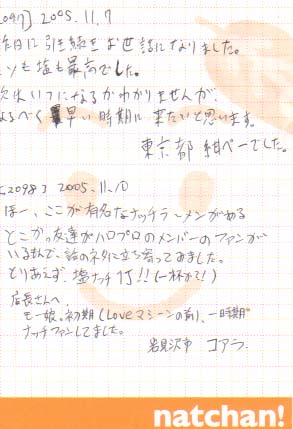 2097] 2005.11.7
昨日に引き続きお世話になりました。
ミソも塩も最高でした。
次はいつになるかわかりませんが、
なるべく早い時期に来たいと思います。
東京都 紺ぺーでした。
[2098] 2005.11.10
ほー、ここが有名なナッチラーメンがある
とこかっ友達がハロプロのメンバーのファンが
いるもんで、話のネタに立ち寄ってみました。
とりあえず、塩ナッチ 1丁!!(一杯か?!)
店長さんへ
モー娘。初期(Loveマシーンの前)、一時期
ナッチファンしてました。
岩見沢市 コアラ
natchan!